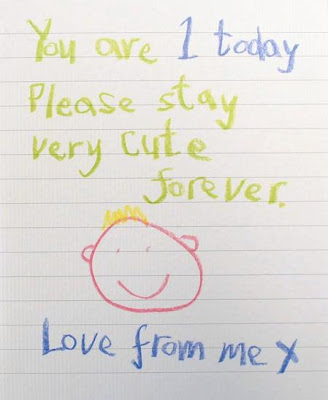 You are 1 today
Please stay
very cute
forever.
Love from me x